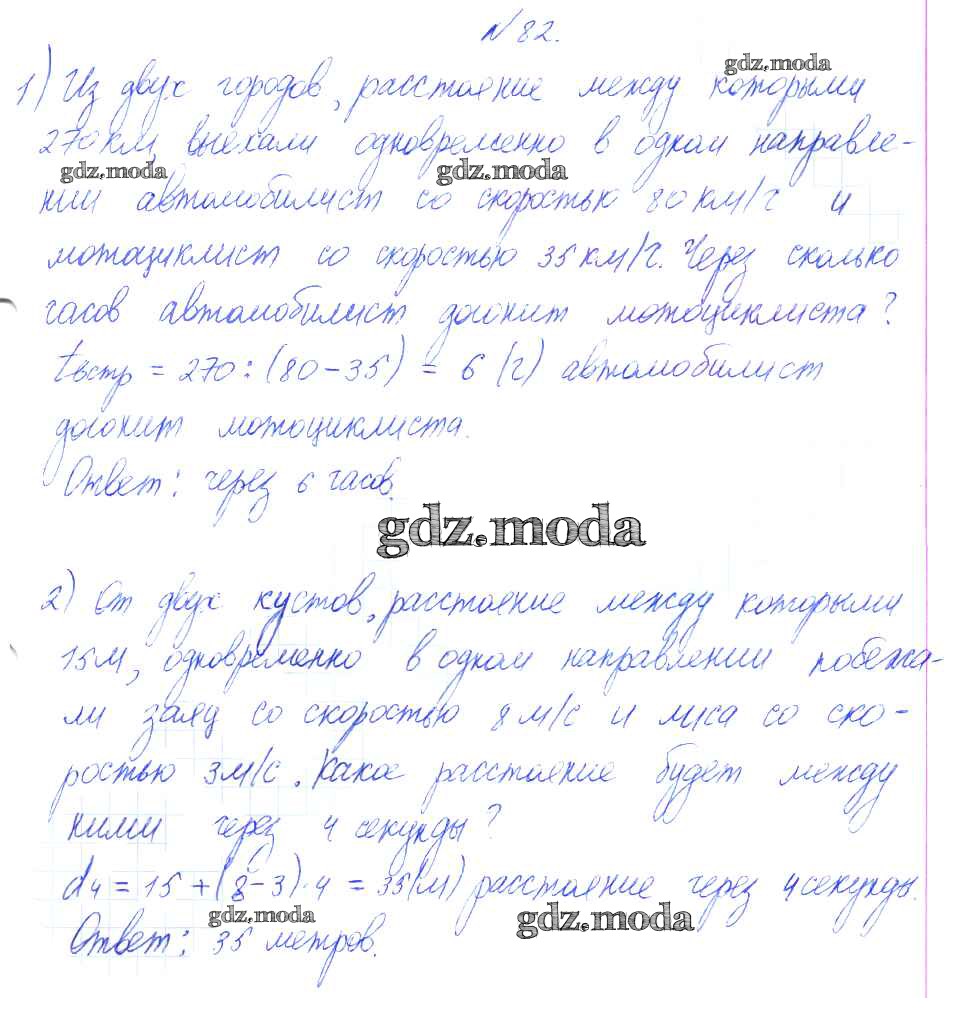 № 82.
gdz.moda
1) Из двух городов, расстояние между которыми
270 км, выехали одновременно в одном направле-
gdz.moda gdz.moda
нии автомобилист со скоростью 80 км/ч и
мотоциклист со скоростью 35 км/ч. Через сколько
часов автомобилист догонит мотоциклиста?
tвстр = 270 : (80 - 35) = 6 (ч) автомобилист
догонит мотоциклиста.
Ответ: через 6 часов.
gdz.moda
2) От двух кустов, расстояние между которыми
15 м, одновременно в одном направлении побежа-
ли заяц со скоростью 8 м/с и лиса со ско-
ростью 3 м/с. Какое расстояние будет между
ними через 4 секунды?
d4 = 15 + (8 - 3) · 4 = 35 (м) расстояние через 4 секунды.
gdz.moda gdz.moda
Ответ: 35 метров.